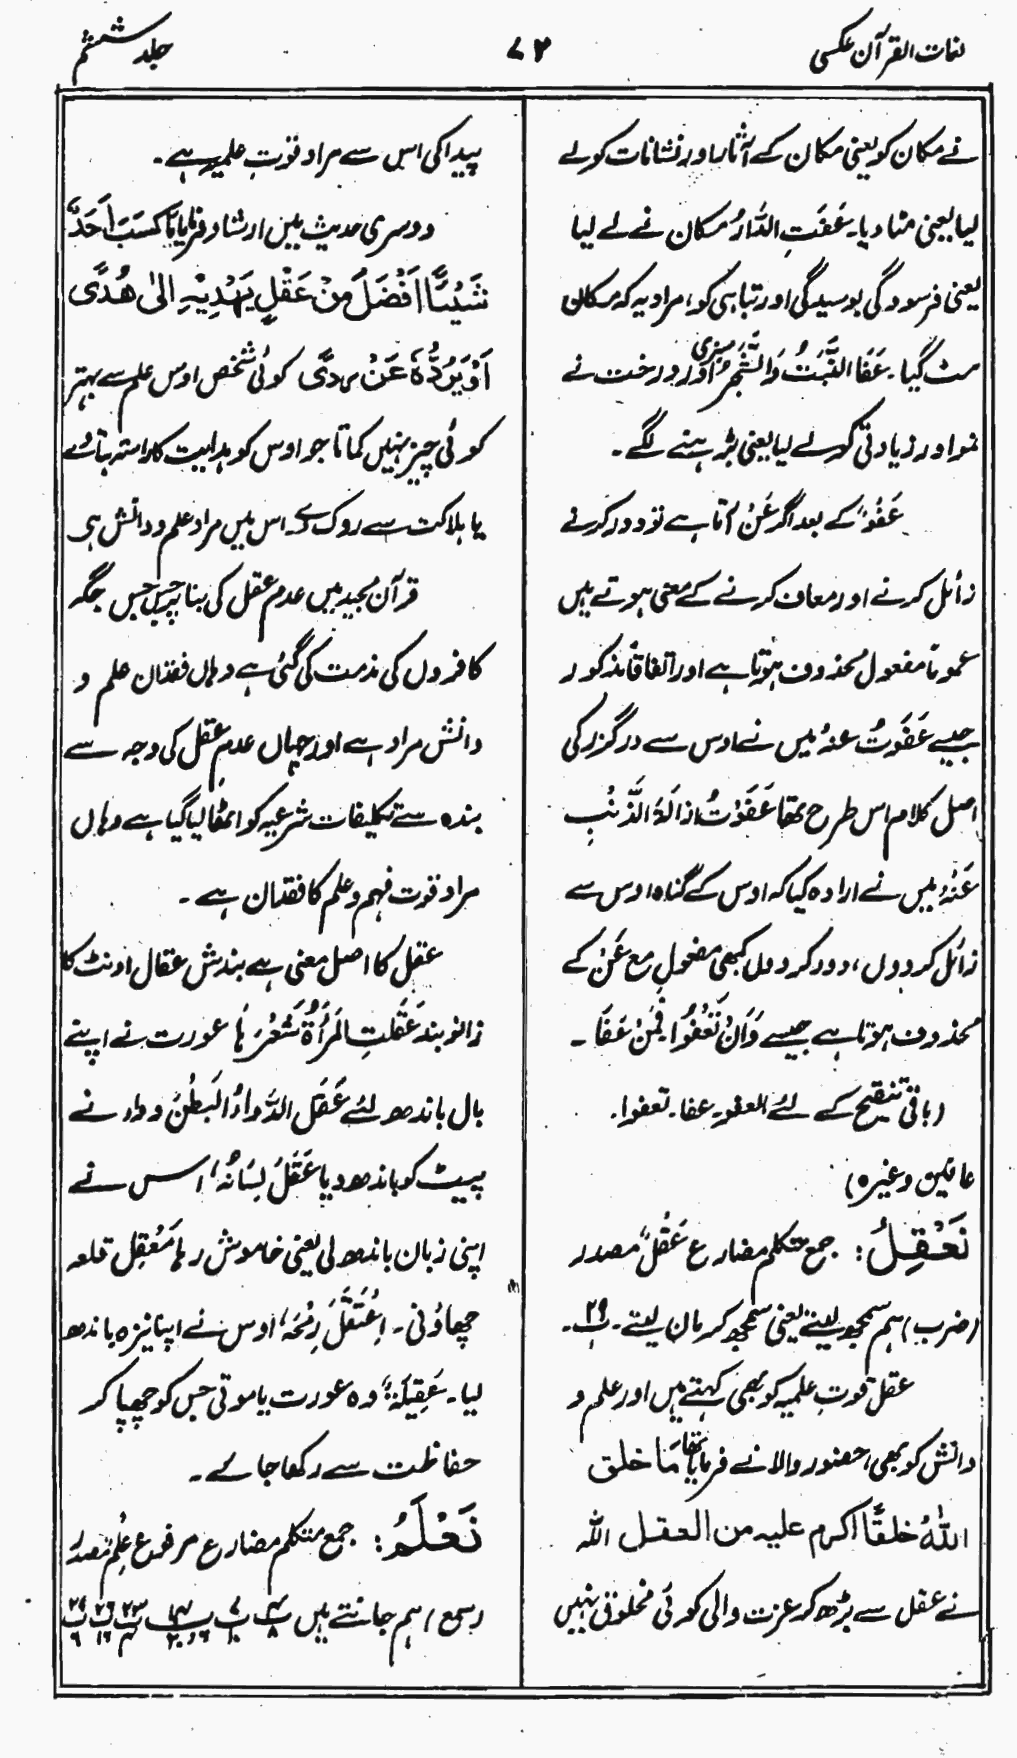 لغات القرآن عکسی
۷۲
جلد ششم
نے مکان کو یعنی مکان کے آثار اور نشانات کو لے
لیا یعنی مٹا دیا۔ عَفَتِ الدَّارُ مکان نے لے لیا
یعنی فرسودگی بوسیدگی اور تباہی کو، مراد یہ کہ مکان
مٹ گیا۔ عَفَا النَّبَتُ وَالشَّجَرُ سبزی اور درخت نے
نمو اور زیادتی کو لے لیا یعنی بڑہنے لگے۔
عَفُوٌ کے بعد اگر عَنْ آتا ہے تو دور کرنے
زائل کرنے اور معاف کرنے کے معنی ہوتے ہیں
عموماً مفعول محذوف ہوتا ہے اور اتفاقاً مذکور
جیسے عَفَوتُ عنہُ میں نے اوس سے درگزر کی
اصل کلام اس طرح تھا عَفَوْتُ ازالَۃَ الذَّنْبِ
عَنْہُ میں نے ارادہ کیا کہ اوس کے گناہ اوس سے
زائل کر دوں، دور کر دوں کبھی مفعول مع عَنْ کے
محذوف ہوتا ہے جیسے وَاَنْ تَعْفُوْا۔ فَمَنْ عَفَا۔
(باقی تنقیح کے لئے العفو۔ عفا۔ تعفوا۔
عافین وغیرہ)
نَعْقِلُ: جمع متکلم مضارع عَقْلٌ مصدر
(ضرب) ہم سمجھ لیتے یعنی سمجھ کر مان لیتے۔ پ۲۹۔
عقل قوتِ علمیہ کو بھی کہتے ہیں اور علم و
دانش کو بھی، حضور والا نے فرمایا تھا مَا خلق
اللّٰہُ خلقًا اکرم علیہ من العقل اللہ
نے عقل سے بڑھ کر عزت والی کوئی مخلوق نہیں
پیدا کی اس سے مراد قوتِ علمیہ ہے۔
دوسری حدیث میں ارشاد فرمایا مَا کَسَبَ اَحَدٌ
شَیْئًا اَفْضَلَ مِنْ عَقْلٍ یَہْدِیْہِ اِلیٰ ھُدًی
اَوْ یَرُدُّہٗ عَنْ رَدًی کوئی شخص اوس علم سے بہتر
کوئی چیز نہیں کماتا جو اوس کو ہدایت کا راستہ بتا دے
یا ہلاکت سے روک دے۔ اس میں مراد علم و دانش ہی
قرآن مجید میں عدم عقل کی بنا پر جس جس جگہ
کافروں کی مذمت کی گئی ہے وہاں فقدان علم و
دانش مراد ہے اور جہاں عدم عقل کی وجہ سے
بندہ سے تکلیفات شرعیہ کو اٹھا لیا گیا ہے وہاں
مراد قوت فہم و علم کا فقدان ہے۔
عقل کا اصل معنی ہے بندش عقال اونٹ کا
زانو بند عَقَلتِ المَرْأَۃُ شَعْرَہَا عورت نے اپنے
بال باندھ لئے عَقَلَ الدَّواءُ الْبَطْنَ دوا نے
پیٹ کو باندھ دیا عَقَلَ لِسَانُہٗ، اس نے
اپنی زبان باندھ لی یعنی خاموش رہا مَعْقِل قلعہ
چھاؤنی۔ اِعْتَقَلَ رُمْحَہٗ، اوس نے اپنا نیزہ باندھ
لیا۔ عَقِیلَۃٌ، وہ عورت یا موتی جس کو چھپا کر
حفاظت سے رکھا جائے۔
نَعْلَمُ: جمع متکلم مضارع مرفوع عِلْم مصدر
(سمع) ہم جانتے ہیں